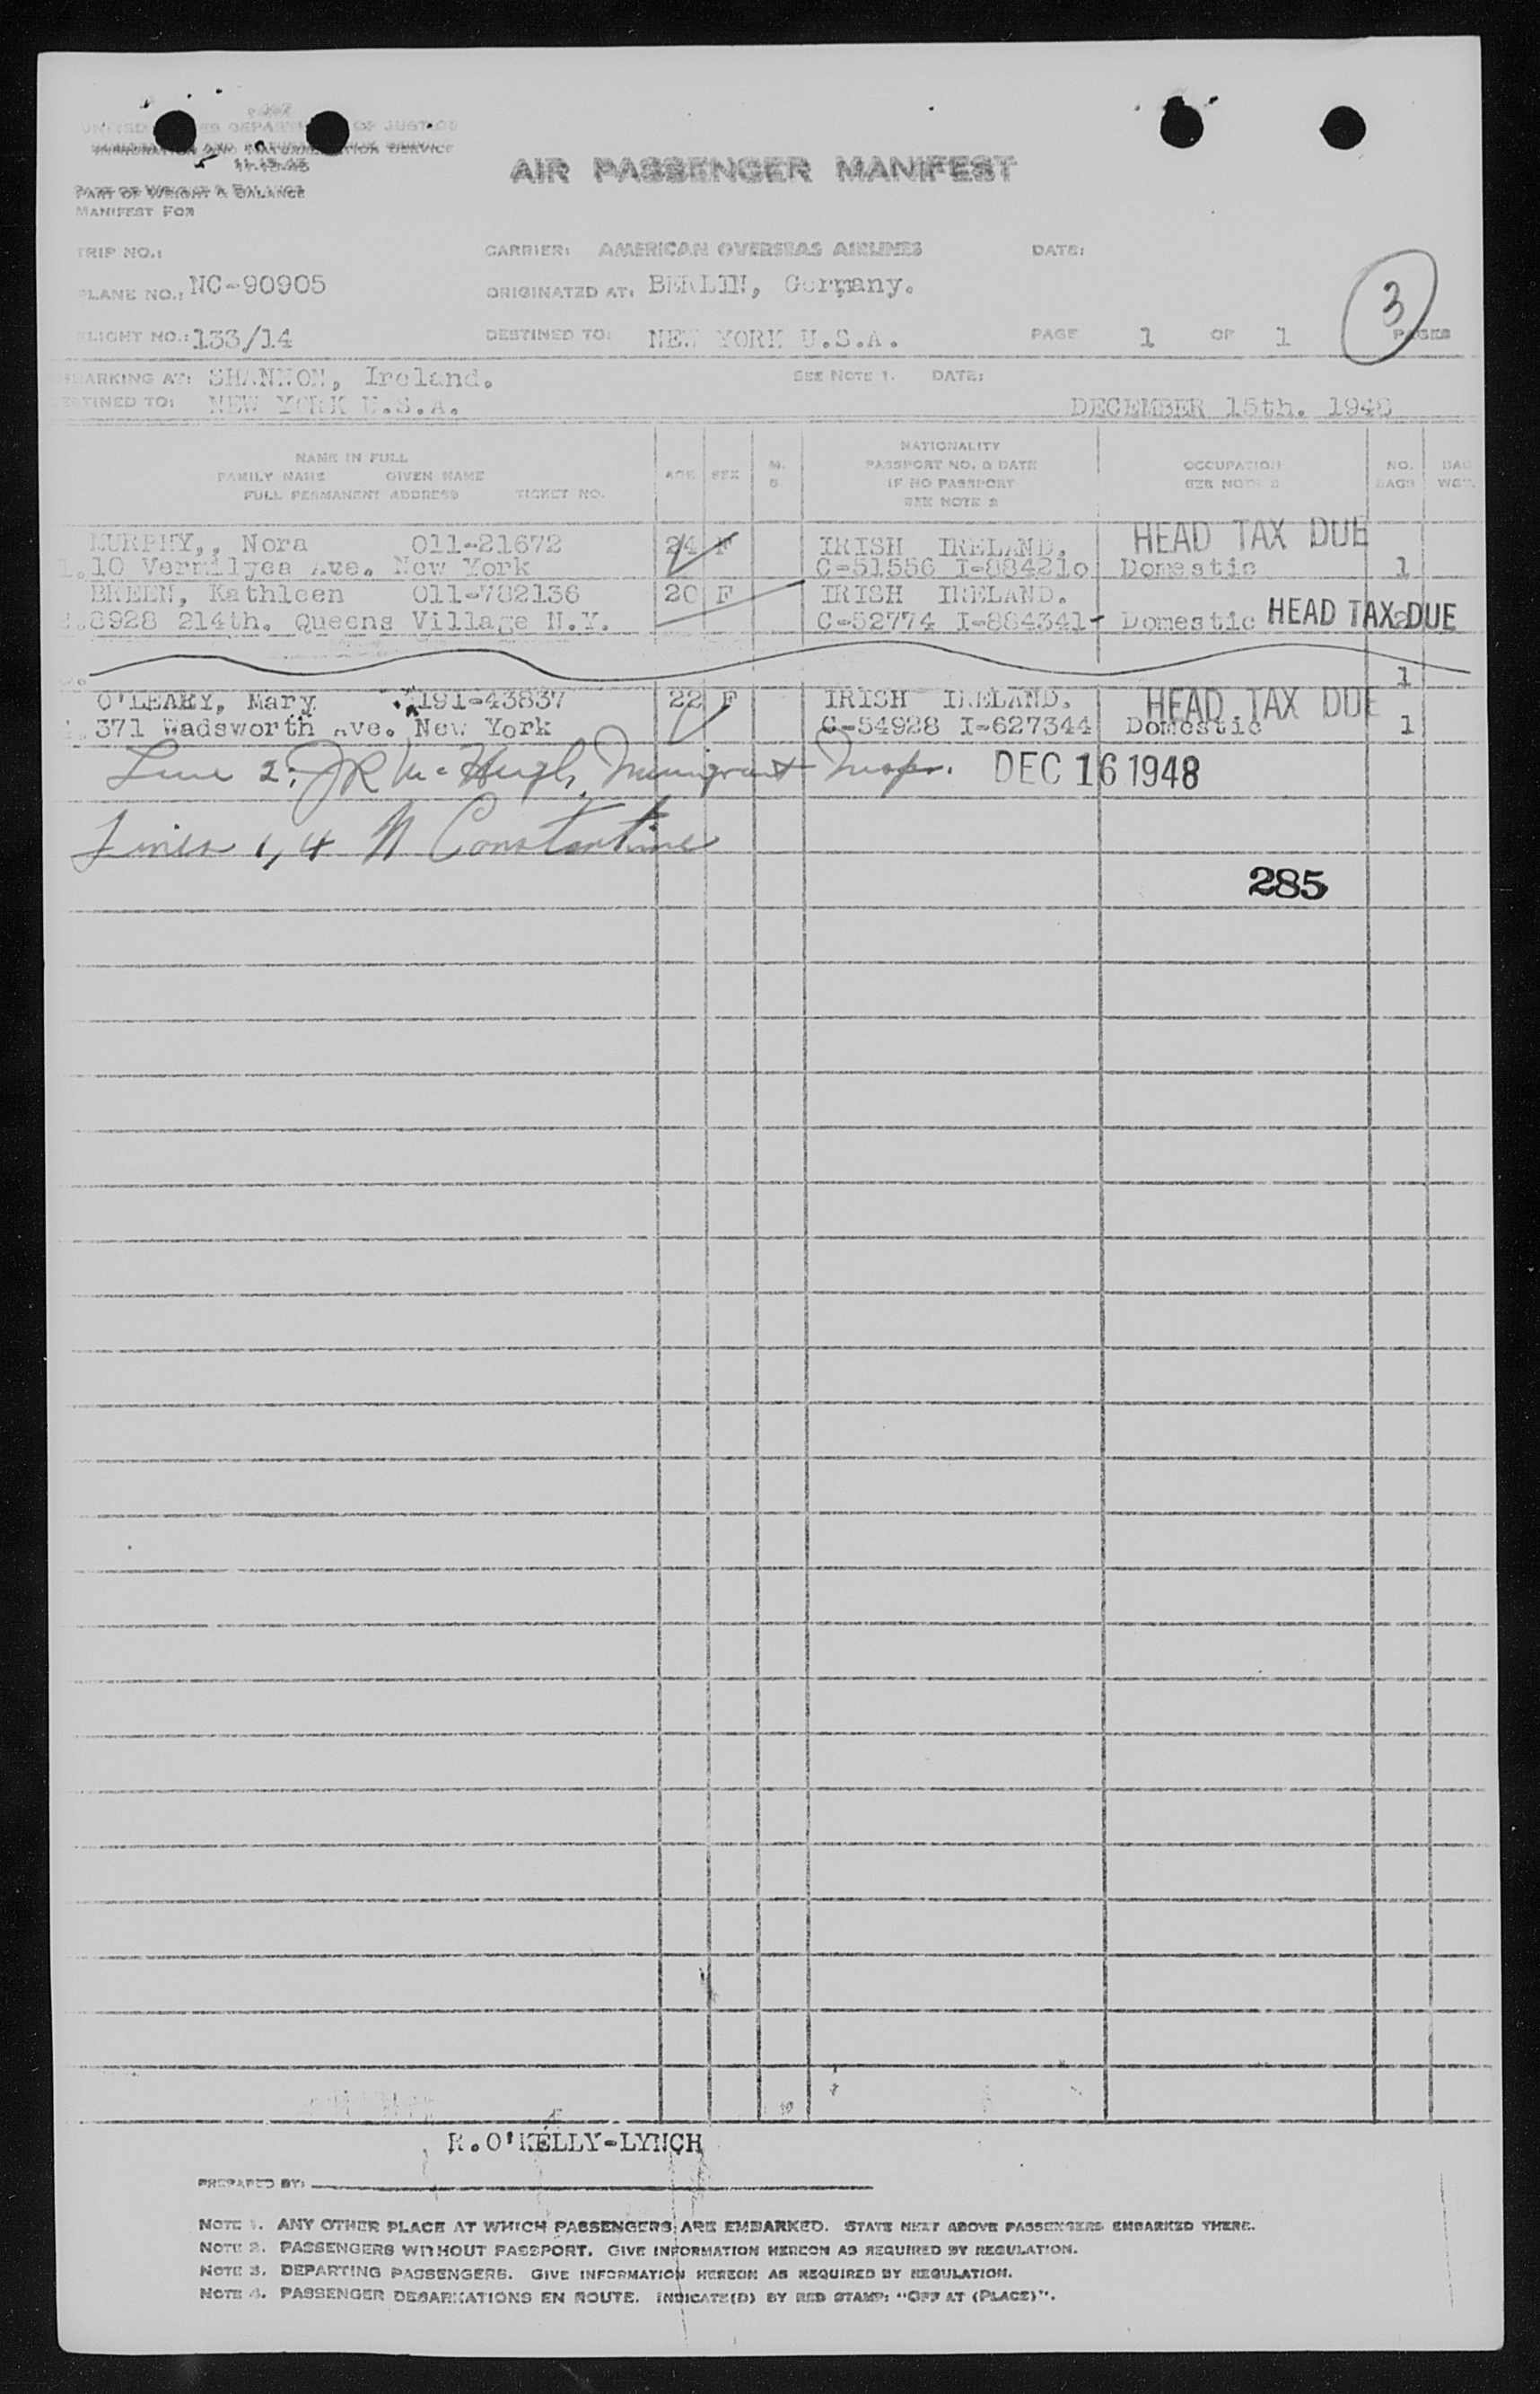 UNITED STATES DEPARTMENT OF JUSTICE
IMMIGRATION AND NATURALIZATION SERVICE
11-15-45
AIR PASSENGER MANIFEST
PART OF WEIGHT & BALANCE
MANIFEST FOR
TRIP NO.: CARRIER: AMERICAN OVERSEAS AIRLINES DATE:
PLANE NO.: NC-90905 ORIGINATED AT: BERLIN, Germany.
3
FLIGHT NO.: 133/14 DESTINED TO: NEW YORK U.S.A. PAGE 1 OF 1 PAGES
EMBARKING AT: SHANNON, Ireland. SEE NOTE 1. DATE:
DESTINED TO: NEW YORK U.S.A. DECEMBER 15th. 1948
NAME IN FULL
FAMILY NAME GIVEN NAME
FULL PERMANENT ADDRESS TICKET NO.
AGE SEX M. S
NATIONALITY
PASSPORT NO. & DATE
IF NO PASSPORT
SEE NOTE 2
OCCUPATION
SEE NOTE 3
NO. BAGS
BAG WGT.
MURPHY,, Nora 011-21672 24 F IRISH IRELAND. HEAD TAX DUE
1. 10 Vermilyea Ave. New York C-51556 I-884210 Domestic 1
BREEN, Kathleen 011-782136 20 F IRISH IRELAND.
8928 214th. Queens Village N.Y. C-52774 I-884341- Domestic HEAD TAX DUE 2
1
O'LEARY, Mary 191-43837 22 F IRISH IRELAND. HEAD TAX DUE
371 Wadsworth Ave. New York C-54928 I-627344 Domestic 1
Line 2. JR McHugh, Immigrant Inspr. DEC 16 1948
Lines 1, 4 N Constantine
285
R.O'KELLY-LYNCH
PREPARED BY:
NOTE 1. ANY OTHER PLACE AT WHICH PASSENGERS ARE EMBARKED. STATE NEXT ABOVE PASSENGERS EMBARKED THERE.
NOTE 2. PASSENGERS WITHOUT PASSPORT. GIVE INFORMATION HEREON AS REQUIRED BY REGULATION.
NOTE 3. DEPARTING PASSENGERS. GIVE INFORMATION HEREON AS REQUIRED BY REGULATION.
NOTE 4. PASSENGER DEBARKATIONS EN ROUTE. INDICATE(D) BY RED STAMP: "OFF AT (PLACE)".